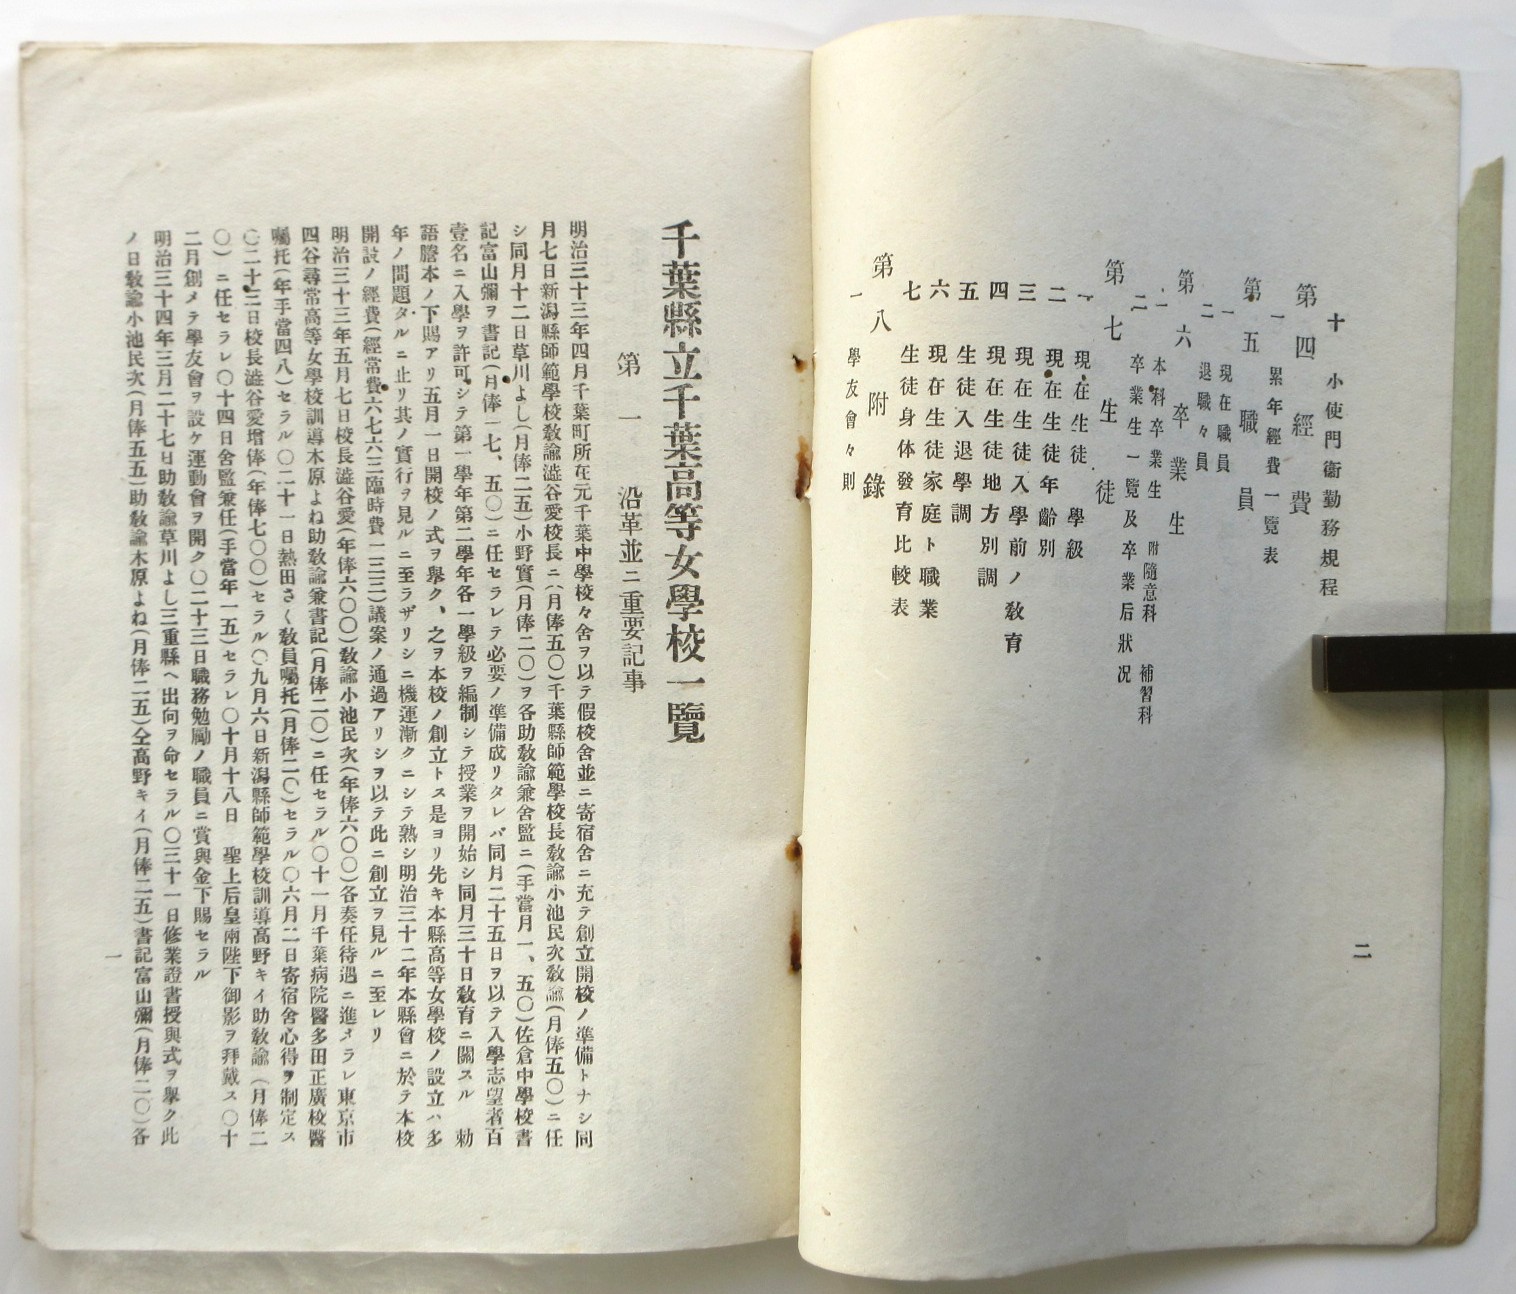 十 小使門衞勤務規程
第四 經費
一 累年經費一覽表
第五 職員
一 現在職員
二 退職々員
第六 卒業生
一 本科卒業生 附 隨意科 補習科
二 卒業生一覽及卒業后狀况
第七 生徒
一 現在生徒 學級
二 現在生徒年齡別
三 現在生徒入學前ノ敎育
四 現在生徒地方別調
五 生徒入退學調
六 現在生徒家庭ト職業
七 生徒身体發育比較表
第八 附錄
一 學友會々則
二
千葉縣立千葉高等女學校一覽
第一 沿革並ニ重要記事
明治三十三年四月千葉町所在元千葉中學校々舍ヲ以テ假校舍並ニ寄宿舍ニ充テ創立開校ノ準備トナシ同
月七日新潟縣師範學校敎諭澁谷愛校長ニ(月俸五〇)千葉縣師範學校長敎諭小池民次敎諭(月俸五〇)ニ任
シ同月十二日草川よし(月俸二五)小野實(月俸二〇)ヲ各助敎諭兼舍監ニ(手當月一、五〇)佐倉中學校書
記富山彌ヲ書記(月俸一七、五〇)ニ任セラレテ必要ノ準備成リタレバ同月二十五日ヲ以テ入學志望者百
壹名ニ入學ヲ許可シテ第一學年第二學年各一學級ヲ編制シテ授業ヲ開始シ同月三十日敎育ニ關スル 勅
語謄本ノ下賜アリ五月一日開校ノ式ヲ擧ク、之ヲ本校ノ創立トス是ヨリ先キ本縣高等女學校ノ設立ハ多
年ノ問題タルニ止リ其ノ實行ヲ見ルニ至ラザリシニ機運漸クニシテ熟シ明治三十二年本縣會ニ於テ本校
開設ノ經費(經常費六七六三臨時費一三三)議案ノ通過アリシヲ以テ此ニ創立ヲ見ルニ至レリ
明治三十三年五月七日校長澁谷愛(年俸六〇〇)敎諭小池民次(年俸六〇〇)各奏任待遇ニ進メラレ東京市
四谷尋常高等女學校訓導木原よね助敎諭兼書記(月俸二〇)ニ任セラル〇十一月千葉病院醫多田正廣校醫
囑托(年手當四八)セラル〇二十一日熱田さく敎員囑托(月俸二〇)セラル〇六月二日寄宿舍心得ヲ制定ス
〇二十三日校長澁谷愛增俸(年俸七〇〇)セラル〇九月六日新潟縣師範學校訓導高野キイ助敎諭(月俸二
〇)ニ任セラレ〇十四日舍監兼任(手當年一五)セラレ〇十月十八日 聖上后皇兩陛下御影ヲ拜戴ス〇十
二月創メテ學友會ヲ設ケ運動會ヲ開ク〇二十三日職務勉勵ノ職員ニ賞與金下賜セラル
明治三十四年三月二十七日助敎諭草川よし三重縣ヘ出向ヲ命セラル〇三十一日修業證書授與式ヲ擧ク此
ノ日敎諭小池民次(月俸五五)助敎諭木原よね(月俸二五)仝高野キイ(月俸二五)書記富山彌(月俸二〇)各
一